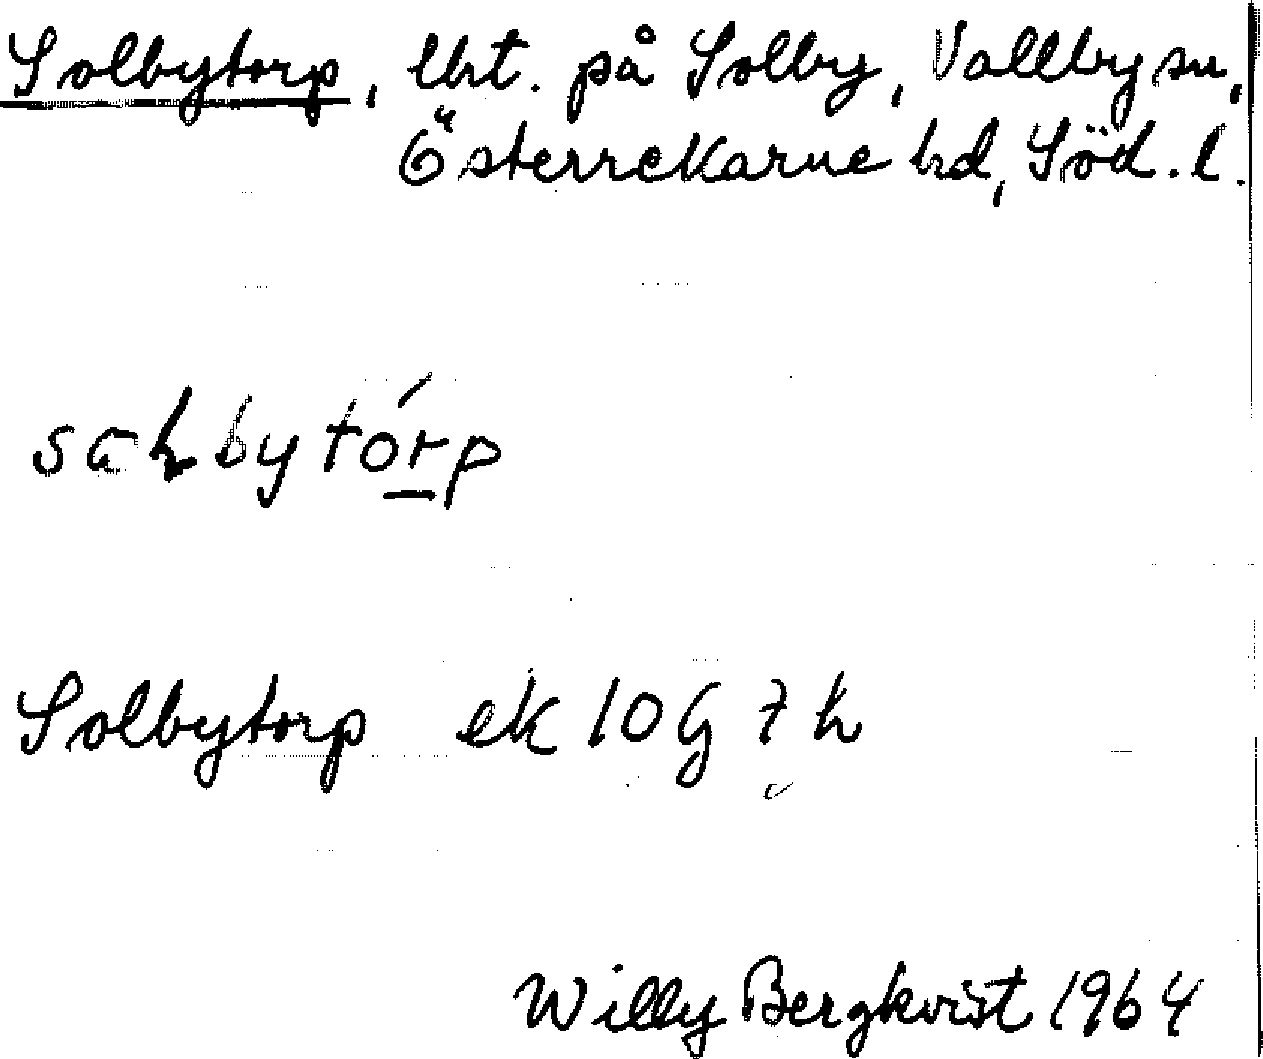 Solbytorp, lht. på Solby, Vallby sn,
Österrekarne hd, Söd. l.
Solbytorp ek 10G 7h
Willy Bergkvist 1964